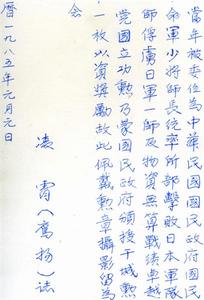 當年被委任為中華民國國民政府國民
命軍少將師長統率所部擊敗日本軍隊
師俘虜日軍一師及物資無算戰績卓越
党國立功勲乃蒙國民政府頒授干城勲
一枚以資獎勵故此佩戴勲章攝影留為
念
凌霄(鷹揚)誌
曆一九八五年元月元日